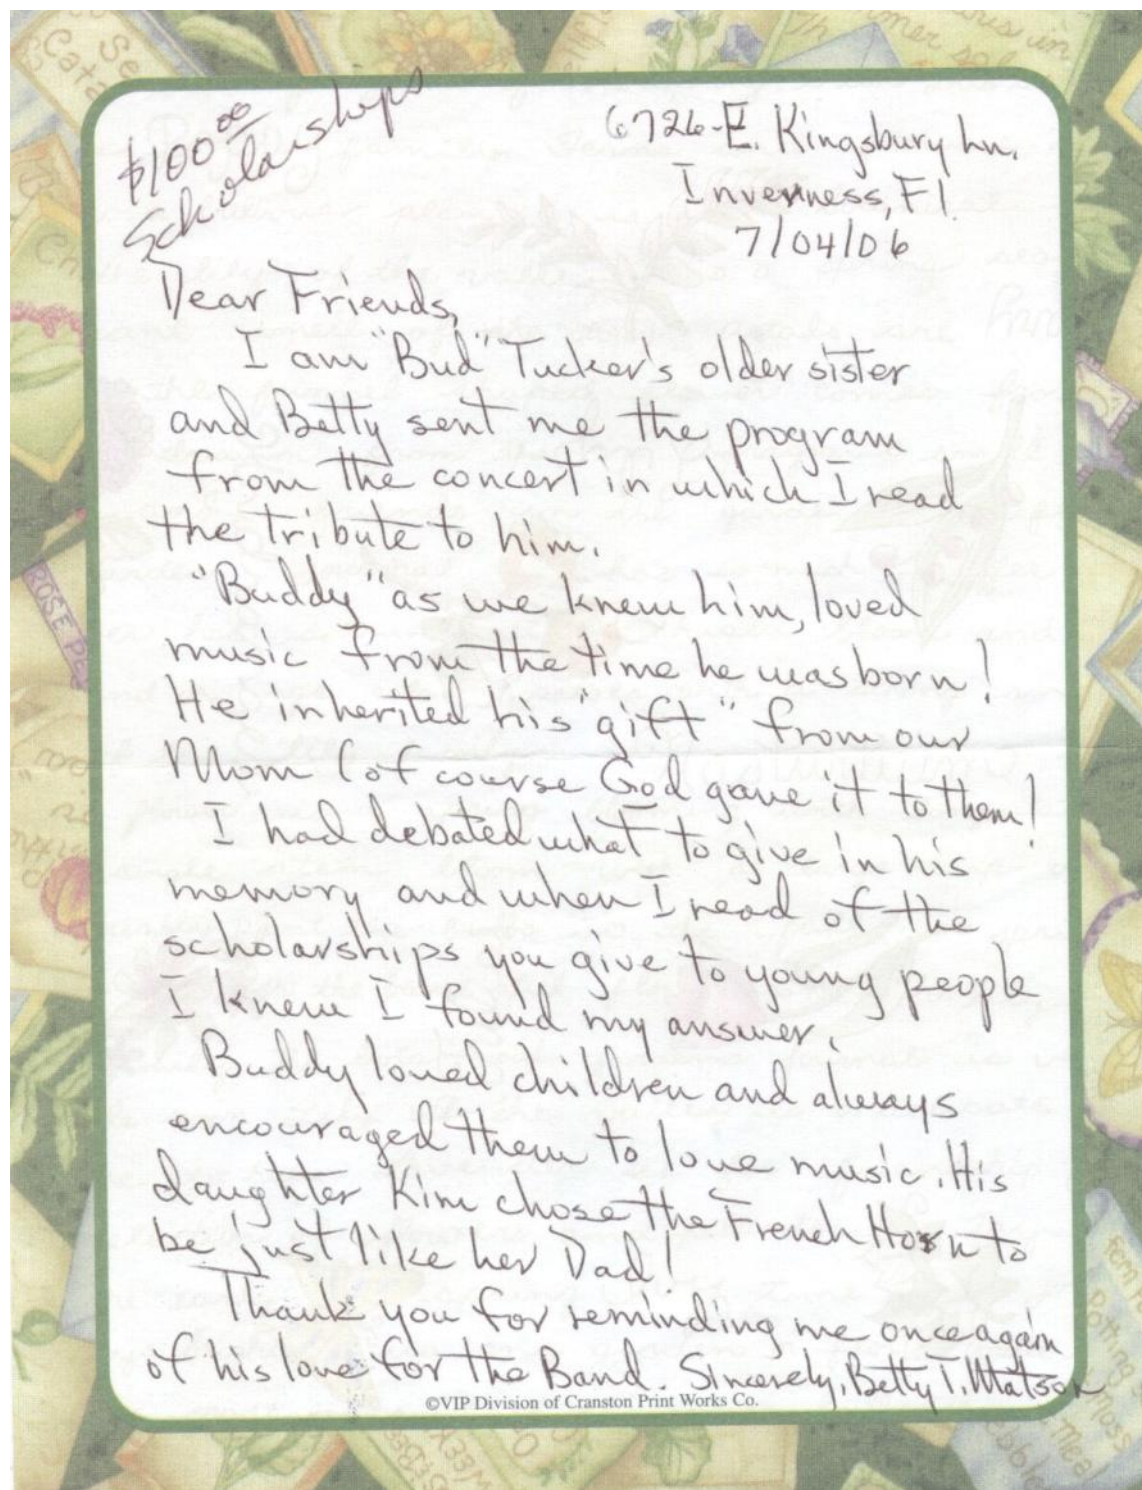 $100.00
Scholarships
6726-E. Kingsbury Ln.
Inverness, Fl.
7/04/06
Dear Friends,
I am "Bud" Tucker's older sister
and Betty sent me the program
from the concert in which I read
the tribute to him.
"Buddy" as we knew him, loved
music from the time he was born!
He inherited his "gift" from our
Mom (of course God gave it to them!
I had debated what to give in his
memory and when I read of the
scholarships you give to young people
I knew I found my answer.
Buddy loved children and always
encouraged them to love music. His
daughter Kim chose the French Horn to
be just like her Dad!
Thank you for reminding me once again
of his love for the Band. Sincerely, Betty T. Matson
©VIP Division of Cranston Print Works Co.
ROSE PE
Potting
Moss
Meal